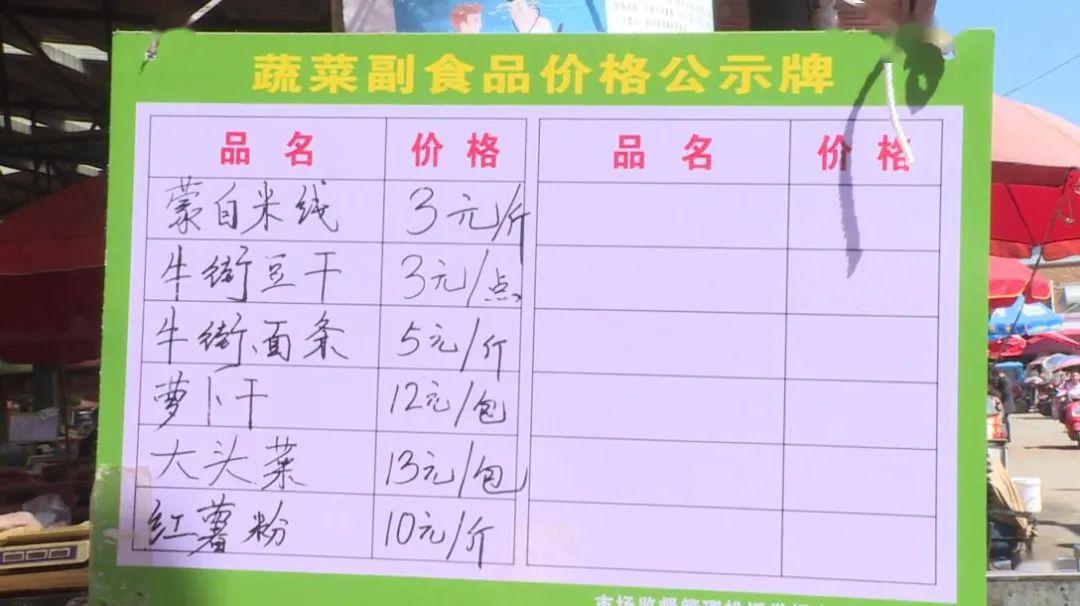 蔬菜副食品价格公示牌
品名 价格 品名 价格
蒙自米线 3元/斤
牛街豆干 3元/点
牛街面条 5元/斤
萝卜干 12元/包
大头菜 13元/包
红薯粉 10元/斤